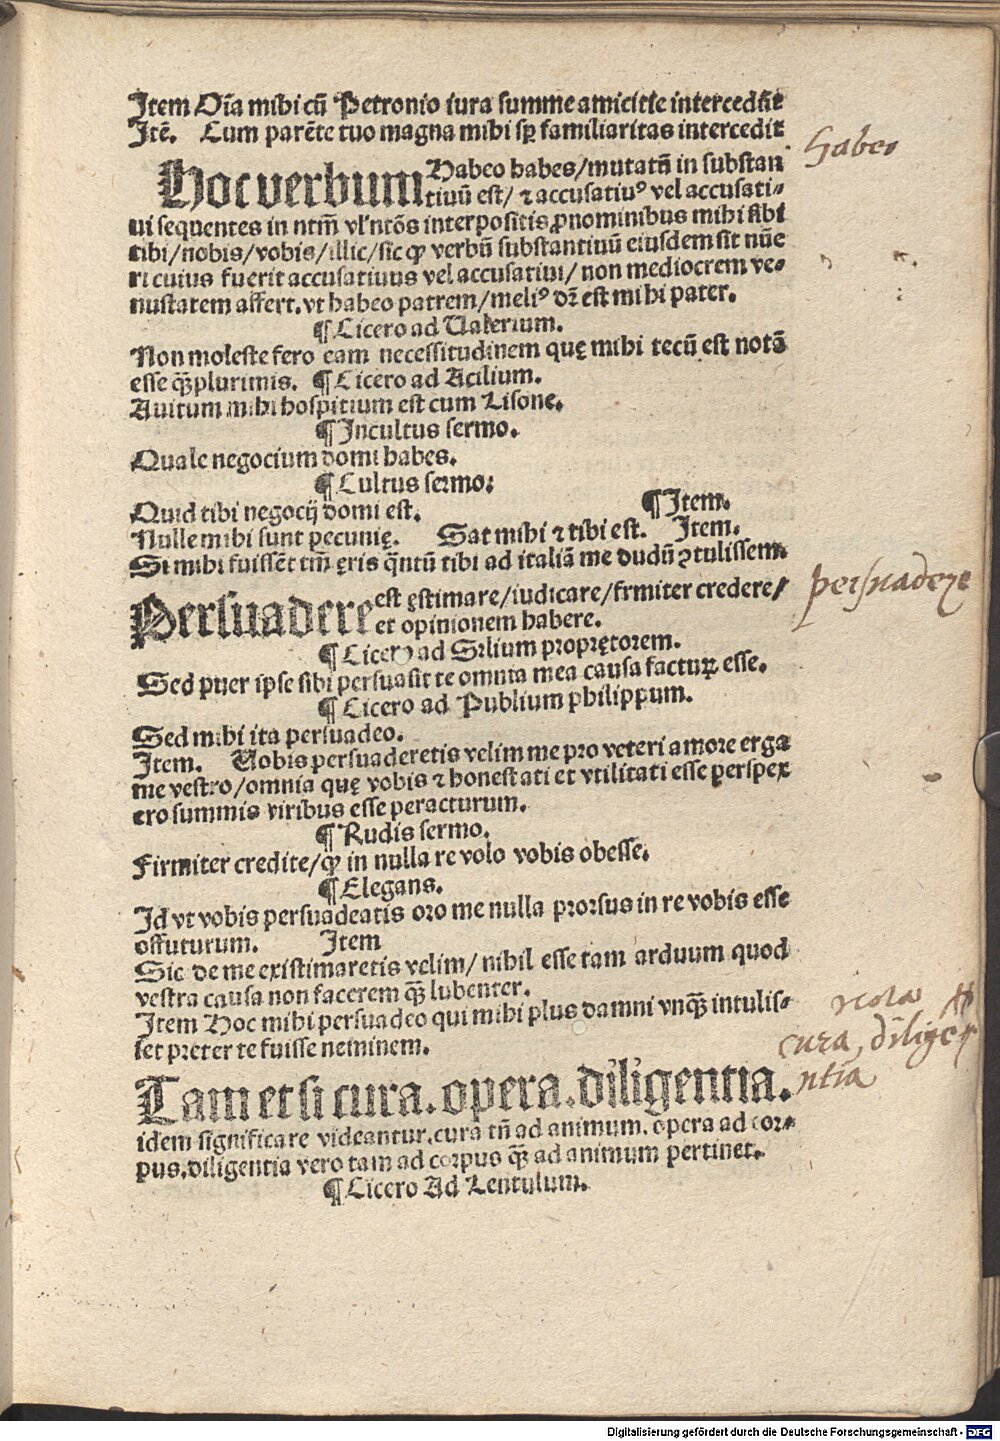 Item Oı̄a mihi cū Petronio iura summe amicitie intercedūt
Itē. Cum parēte tuo magna mihi sꝑ familiaritas intercedit
Habeo
Hoc verbum Habeo habes/mutatū in substan
tiuū est/ ⁊ accusatiuꝰ vel accusati-
ui sequentes in ntm̄ vl' ntōs interpositis ꝓnominibus mihi sibi
tibi/nobis/vobis/illic/sic ꝙ verbū substantiuū eiusdem sit nūe
ri cuius fuerit accusatiuus vel accusatiui/ non mediocrem ve-
nustatem affert. vt habeo patrem/meliꝰ dr̄ est mihi pater.
¶ Cicero ad Ualerium.
Non moleste fero eam necessitudinem quę mihi tecū est notā
esse ꝙ̄plurimis. ¶ Cicero ad Acilium.
Auitum mihi hospitium est cum Lisone.
¶ Incultus sermo.
Quale negocium domi habes.
¶ Cultus sermo:
Quid tibi negocij domi est. ¶ Item.
Nulle mihi sunt pecunię. Sat mihi ⁊ tibi est. Item.
Si mihi fuissēt tm̄ ęris ꝙ̄ntū tibi ad italiā me dudū ꝯtulissem.
persuadere
Persuadere est ęstimare/iudicare/firmiter credere/
et opinionem habere.
¶ Cicero ad Silium proprętorem.
Sed puer ipse sibi persuasit te omnia mea causa facturꝝ esse.
¶ Cicero ad Publium philippum.
Sed mihi ita persuadeo.
Item. Uobis persuaderetis velim me pro veteri amore erga
me vestro/omnia quę vobis ⁊ honestati et vtilitati esse perspex
ero summis viribus esse peracturum.
¶ Rudis sermo.
Firmiter credite/ꝙ in nulla re volo vobis obesse.
¶ Elegans.
Id vt vobis persuadeatis oro me nulla prorsus in re vobis esse
offuturum. Item
Sic de me existimaretis velim/ nihil esse tam arduum quod
vestra causa non facerem ꝙ̄ lubenter.
Item Hoc mihi persuadeo qui mihi plus damni vnꝙ̄ intulis-
set preter te fuisse neminem.
cura, dilige
ntia
Tametsi cura. opera. diligentia.
idem significare videantur. cura tn̄ ad animum. opera ad cor-
pus. diligentia vero tam ad corpus ꝙ̄ ad animum pertinet.
¶ Cicero Ad Lentulum.
Digitalisierung gefördert durch die Deutsche Forschungsgemeinschaft - DFG